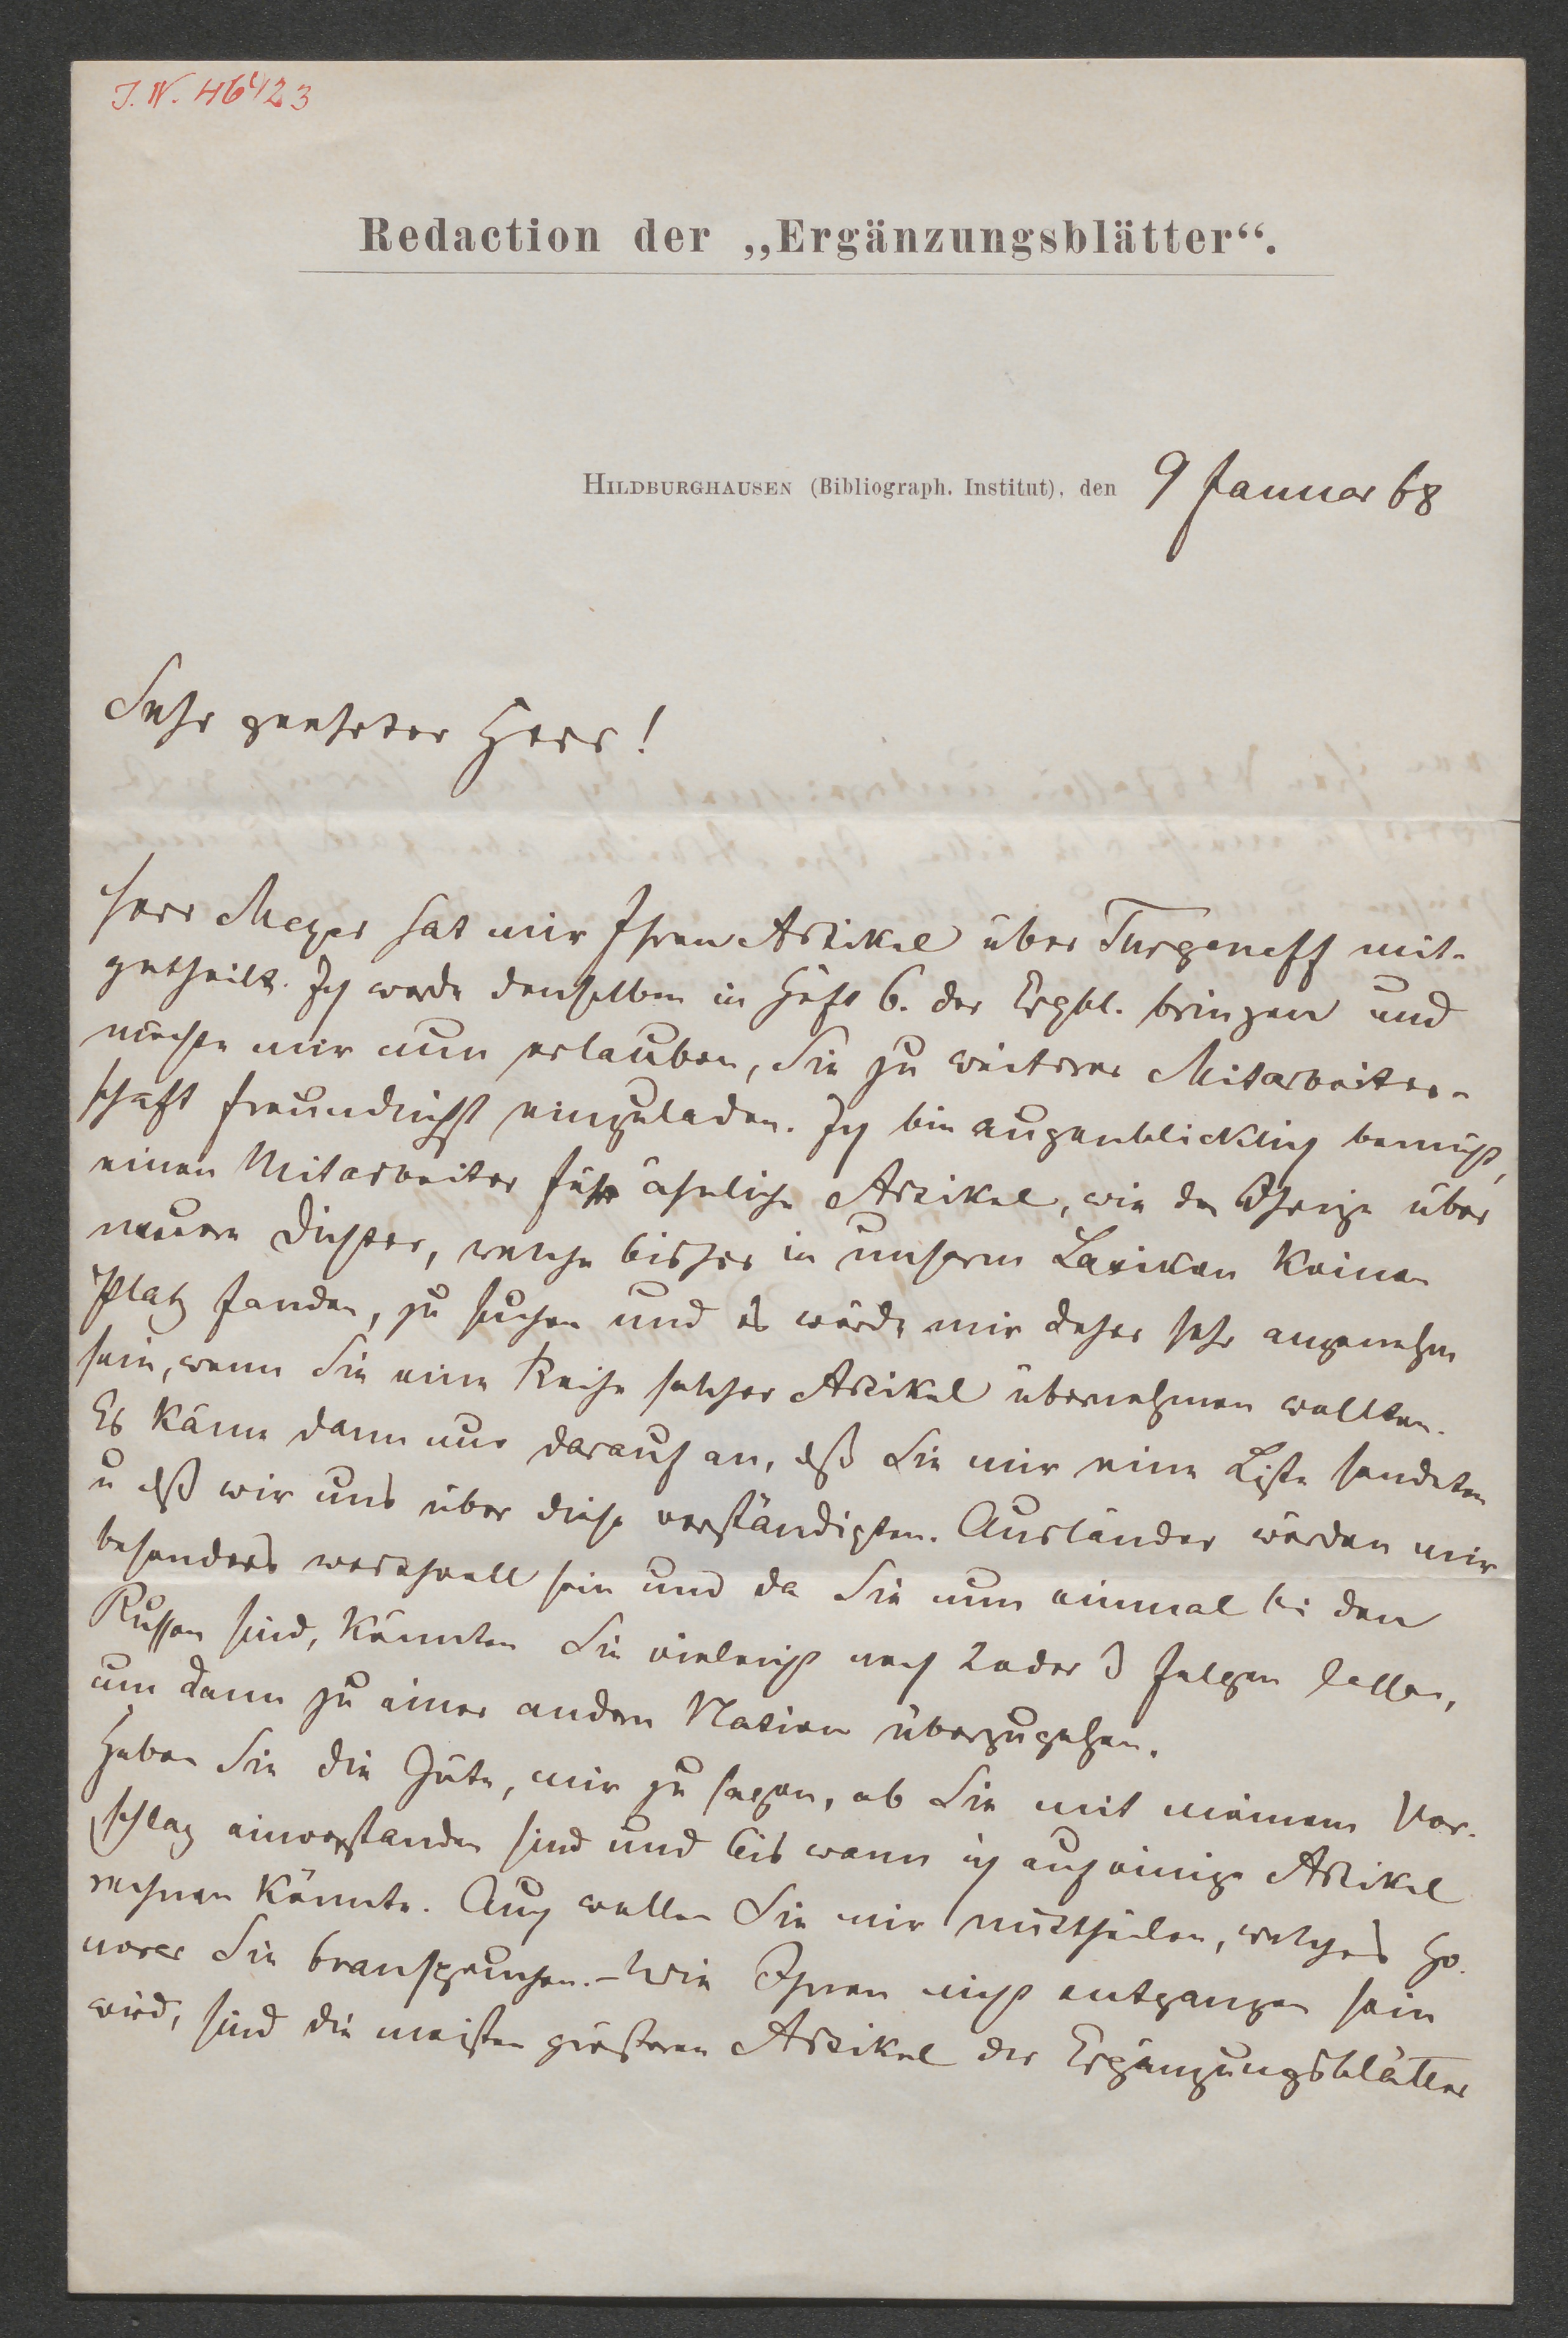 J. N. 46423
Redaction der „Ergänzungsblätter“.
Hildburghausen (Bibliograph. Institut), den 9 Januar 68
Sehr geehrter Herr!
Herr Meyer hat mir Ihren Artikel über Turgeneff mit-
getheilt. Ich werde denselben in Heft 6. der Ergbl. bringen und
möchte mir nun erlauben, Sie zu weiterer Mitarbeiter-
schaft freundlichst einzuladen. Ich bin augenblicklich bemüht,
einen Mitarbeiter für ähnliche Artikel, wie der Ihrige über
neuere Dichter, welche bisher in unserm Lexikon keinen
Platz fanden, zu suchen und es würde mir daher sehr angenehm
sein, wenn Sie eine Reihe solcher Artikel übernehmen wollten.
Es käme dann nur darauf an, dß Sie mir eine Liste sendeten
u dß wir uns über diese verständigten. Ausländer würden mir
besonders werthvoll sein und da Sie nun einmal bei den
Russen sind, könnten Sie vieleicht noch 2 oder 3 folgen lassen,
um dann zu einer andern Nation überzugehen.
Haben Sie die Güte, mir zu sagen, ob Sie mit meinem Vor-
schlag einverstanden sind und bis wann ich auf einige Artikel
rechnen könnte. Auch wollen Sie mir mittheilen, welches Ho-
norar Sie beanspruchen. – Wie Ihnen nicht entgangen sein
wird, sind die meisten größeren Artikel der Ergänzungsblätter